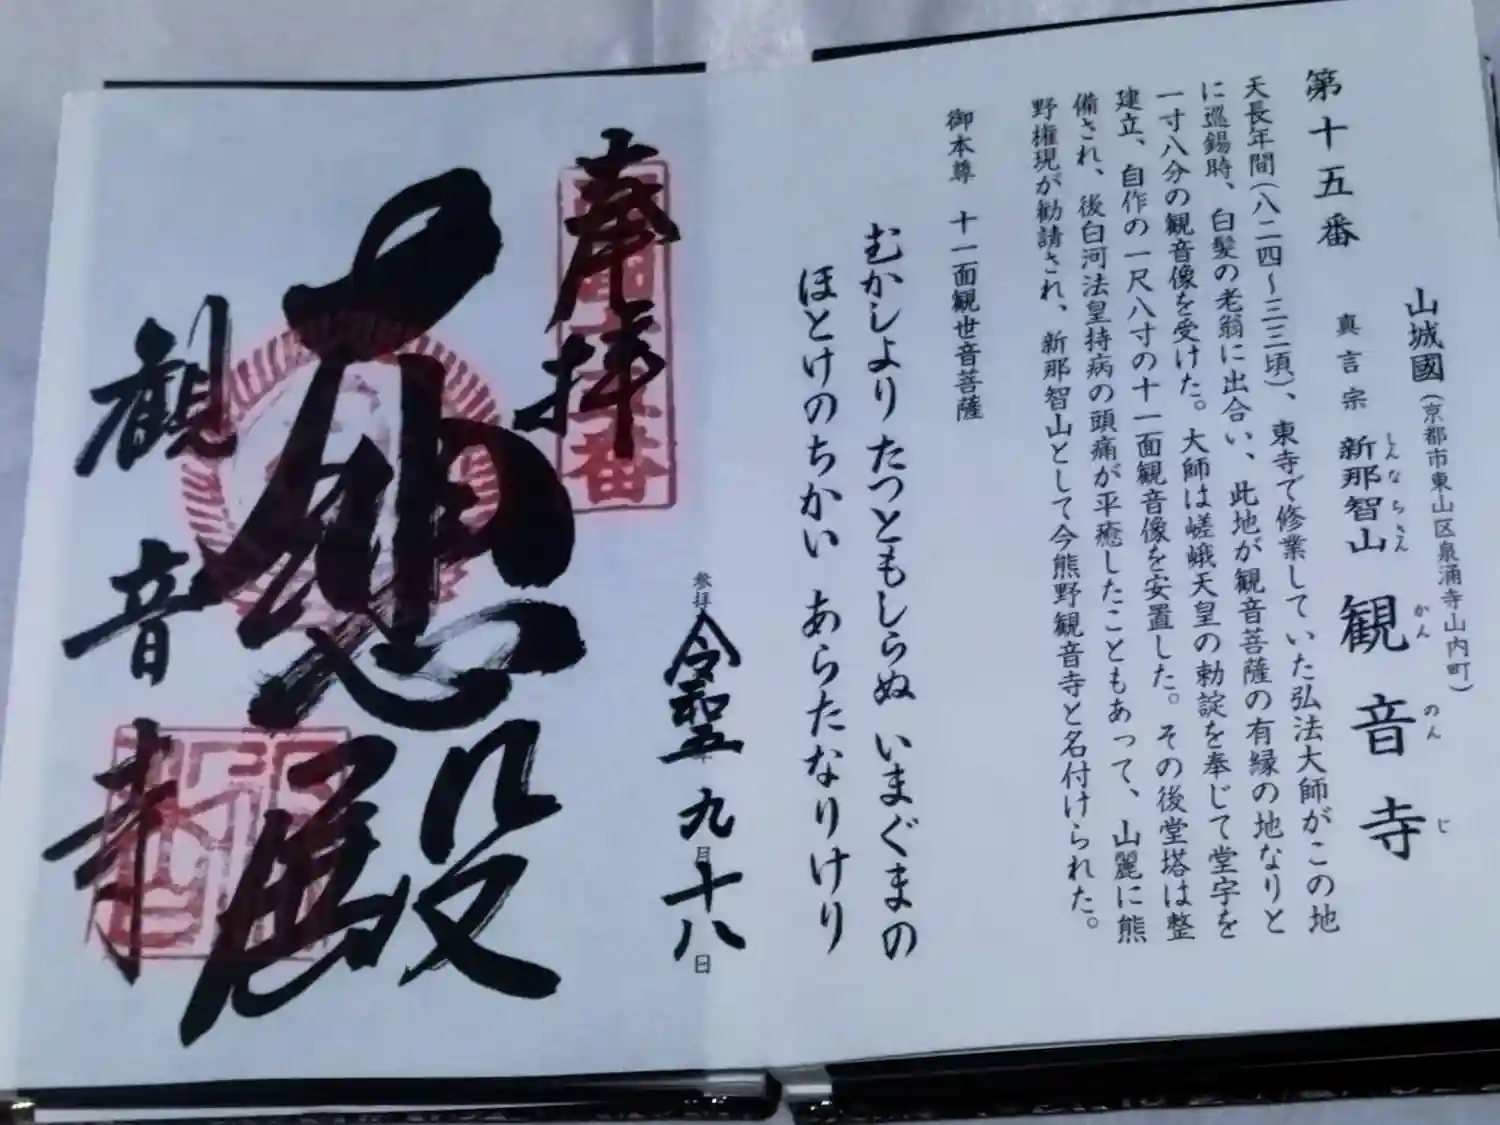 第十五番
山城國(京都市東山区泉涌寺山内町)
真言宗 新那智山 観音寺
しんなちさん かんのんじ
天長年間(八二四~三三頃)、東寺で修業していた弘法大師がこの地
に巡錫時、白髪の老翁に出合い、此地が観音菩薩の有縁の地なりと
一寸八分の観音像を受けた。大師は嵯峨天皇の勅諚を奉じて堂宇を
建立、自作の一尺八寸の十一面観音像を安置した。その後堂塔は整
備され、後白河法皇持病の頭痛が平癒したこともあって、山麗に熊
野権現が勧請され、新那智山として今熊野観音寺と名付けられた。
御本尊 十一面観世音菩薩
むかしより たつともしらぬ いまぐまの
ほとけのちかい あらたなりけり
参拝 令和五年九月十八日
奉拝
大悲殿
観音寺